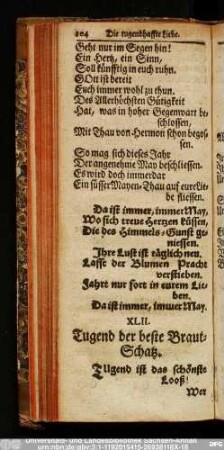 204 Die tugendhaffte Liebe.
Geht nur im Segen hin!
Ein Hertz, ein Sinn,
Soll künfftig in euch ruhn.
GOtt ist bereit
Euch immer wohl zu thun.
Des Allerhöchsten Gütigkeit
Hat, was in hoher Gegenwart be-
schlossen,
Mit Thau von Hermon schon begos-
sen.
So mag sich dieses Jahr
Der angenehme May beschliessen.
Es wird doch immerdar
Ein süsser Mayen-Thau auf eure Lie-
be fliessen.
Da ist immer, immer May,
Wo sich treue Hertzen küssen,
Die des Himmels-Gunst ge-
niessen.
Ihre Lust ist täglich neu.
Lasse der Blumen Pracht
verstieben.
Fahrt nur fort in eurem Lie-
ben.
Da ist immer, immer May.
XLII.
Tugend der beste Braut-
Schatz.
TUgend ist das schönste
Looß!
Wer